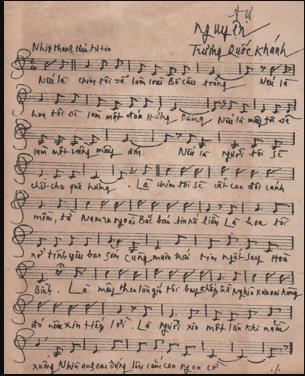 Tự
nguyện
Trương Quốc Khánh
Nhịp thong thả từ tốn
Nếu là chim tôi sẽ làm loài Bồ câu trắng Nếu là
hoa tôi sẽ làm một đóa Hướng Dương Nếu là mây tôi sẽ
làm một vầng mây ấm Nếu là người tôi sẽ
chết cho quê hương. Là chim tôi sẽ cất cao đôi cánh
mềm, từ Nam ra ngoài Bắc báo tin nối liền Là hoa tôi
nở tình yêu ban sớm cùng muôn trái tim ngất say Hòa
Bình. Là mây theo làn gió tôi bay khắp trời Nghìn xưa oai hùng
đó nay xin tiếp lời. Là người xin một lần khi nằm
xuống Nhìn anh em đứng lên cắm cao ngọn cờ